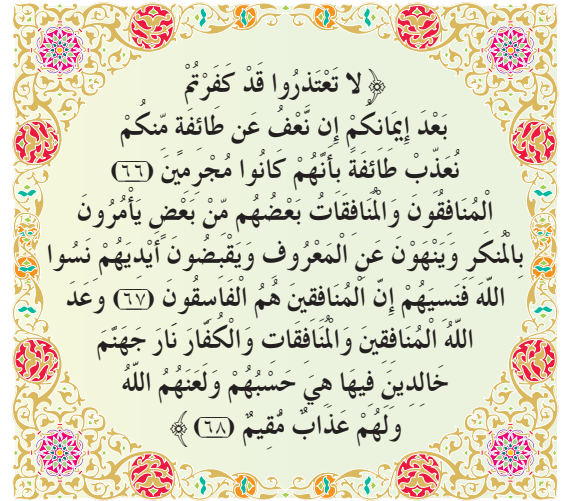 ﴿ لا تَعْتَذِرُوا قَدْ كَفَرْتُمْ
بَعْدَ إِيمَانِكُمْ إِن نَّعْفُ عَن طَائِفَةٍ مِّنكُمْ
نُعَذِّبْ طَائِفَةً بِأَنَّهُمْ كَانُوا مُجْرِمِينَ (٦٦)
الْمُنَافِقُونَ وَالْمُنَافِقَاتُ بَعْضُهُم مِّنْ بَعْضٍ يَأْمُرُونَ
بِالْمُنكَرِ وَيَنْهَوْنَ عَنِ الْمَعْرُوفِ وَيَقْبِضُونَ أَيْدِيَهُمْ نَسُوا
اللَّهَ فَنَسِيَهُمْ إِنَّ الْمُنَافِقِينَ هُمُ الْفَاسِقُونَ (٦٧) وَعَدَ
اللَّهُ الْمُنَافِقِينَ وَالْمُنَافِقَاتِ وَالْكُفَّارَ نَارَ جَهَنَّمَ
خَالِدِينَ فِيهَا هِيَ حَسْبُهُمْ وَلَعَنَهُمُ اللَّهُ
وَلَهُمْ عَذَابٌ مُّقِيمٌ (٦٨) ﴾